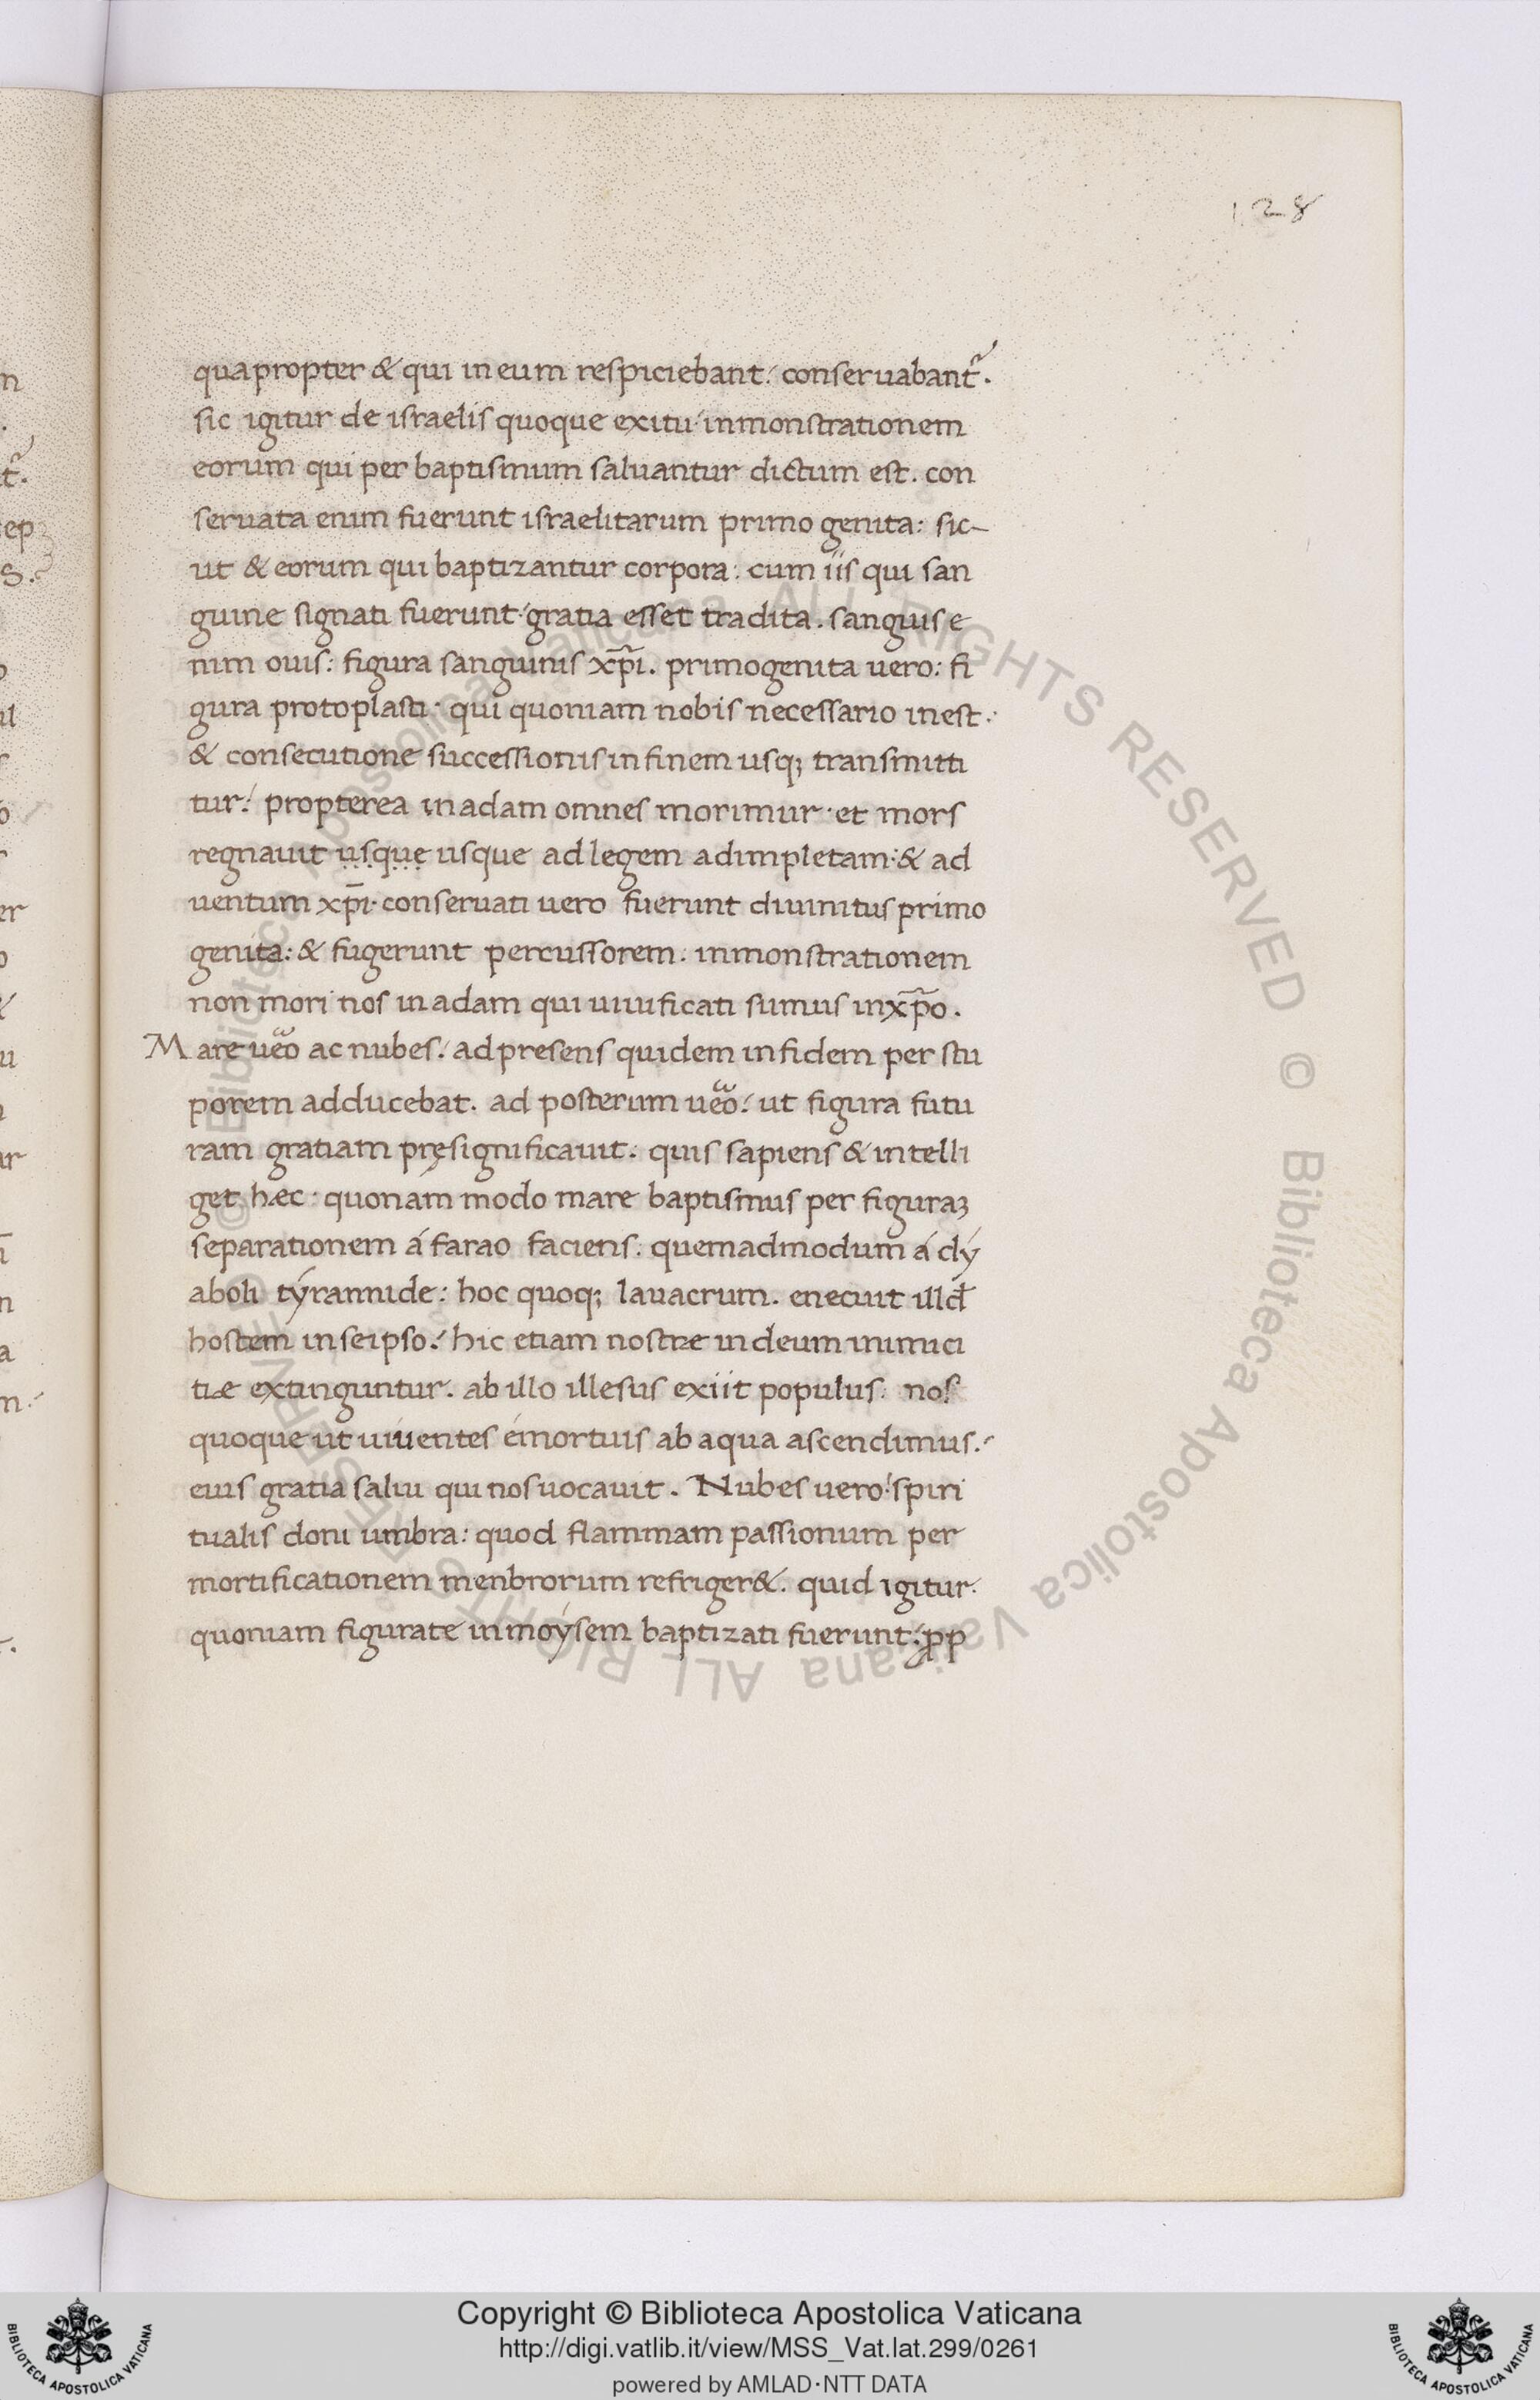 128
quapropter & qui in eum respiciebant: conseruabant᷑.
sic igitur de israelis quoque exitu inmonstrationem
eorum qui per baptismum saluantur dictum est. con
seruata enim fuerunt israelitarum primo genita: sic-
ut & eorum qui baptizantur corpora: cum iis qui san
guine signati fuerunt gratia esset tradita. sanguis e
nim ouis: figura sanguinis xp̄i. primogenita uero: fi
gura protoplasti· qui quoniam nobis necessario inest·
& consecutione successionis in finem usq; transmitti
tur: propterea in adam omnes morimur· et mors
regnauit usque usque ad legem adimpletam: & ad
uentum xp̄i· conseruati uero fuerunt diuinitus primo
genita: & fugerunt percussorem: inmonstrationem
non mori nos in adam qui uiuificati sumus in xp̄o.
Mare ueͣo ac nubes: ad presens quidem in fidem per stu
porem adducebat. ad posterum ueͣo: ut figura futu
ram gratiam pręsignificauit. quis sapiens & intelli
get hæc: quonam modo mare baptismus per figuraꝫ
separationem á farao faciens: quemadmodum á dy
aboli tyrannide: hoc quoq; lauacrum. enecuit illđ
hostem in seipso: hic etiam nostræ in deum inimici
tiæ extinguntur. ab illo illesus exiit populus: nos
quoque ut uiuentes émortuis ab aqua ascendimus:
eius gratia salui qui nos uocauit. Nubes uero: spiri
tualis doni umbra: quod flammam passionum per
mortificationem menbrorum refriger&. quid igitur·
quoniam figurate in moysem baptizati fuerunt: ꝓp
Copyright © Biblioteca Apostolica Vaticana
http://digi.vatlib.it/view/MSS_Vat.lat.299/0261
powered by AMLAD·NTT DATA
© Biblioteca Apostolica Vaticana ALL RIGHTS RESERVED
© Biblioteca Apostolica Vaticana ALL RIGHTS RESERVED
BIBLIOTECA APOSTOLICA VATICANA
BIBLIOTECA APOSTOLICA VATICANA